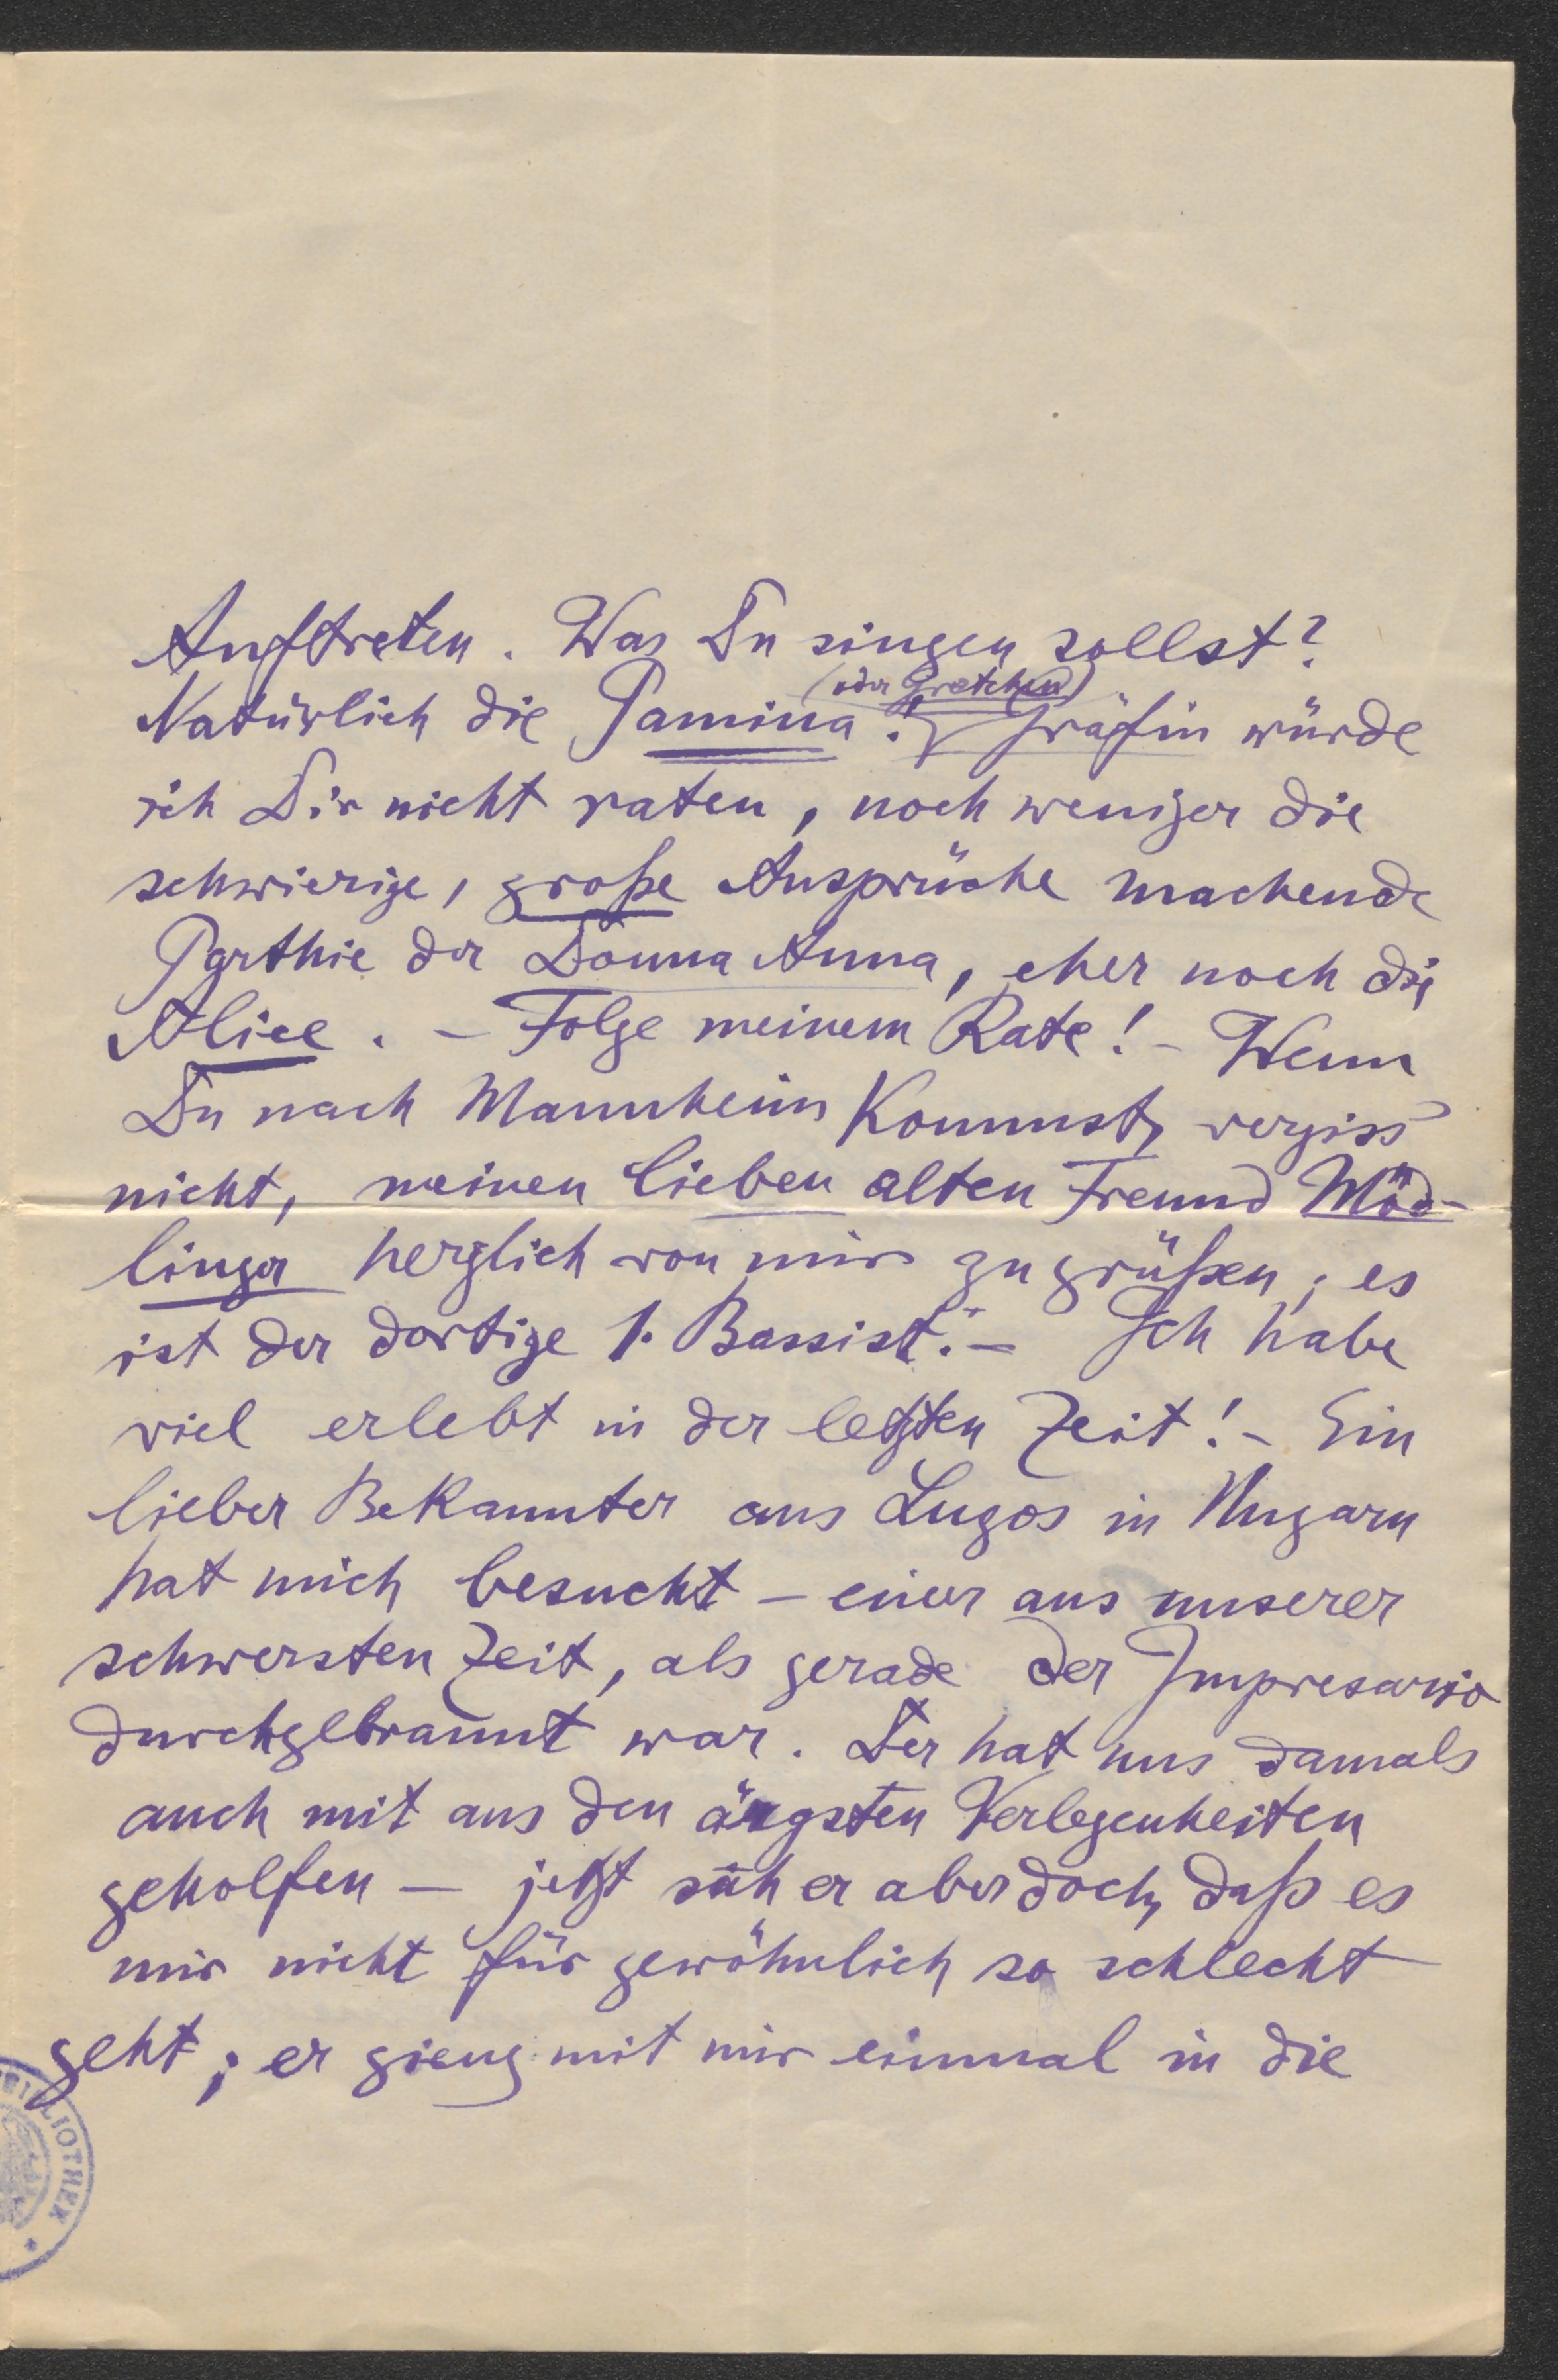 Auftreten. Was Du singen sollst?
(oder Gretchen)
Natürlich die Pamina! Gräfin würde
ich Dir nicht raten, noch weniger die
schwierige, große Ansprüche machende
Parthie der Donna Anna, eher noch die
Alice. – Folge meinem Rate! – Wenn
Du nach Mannheim kommst, vergiss
nicht, meinen lieben alten Freund Möd-
linger herzlich von mir zu grüßen; es
ist der dortige 1. Bassist. – Ich habe
viel erlebt in der letzten Zeit! – Ein
lieber Bekannter aus Lugos in Ungarn
hat mich besucht – einer aus unserer
schwersten Zeit, als gerade der Impresario
durchgebrannt war. Der hat uns damals
auch mit aus den ärgsten Verlegenheiten
geholfen – jetzt sah er aber doch, daß es
mir nicht für gewöhnlich so schlecht
geht; er gieng mit mir einmal in die
BIBLIOTHEK